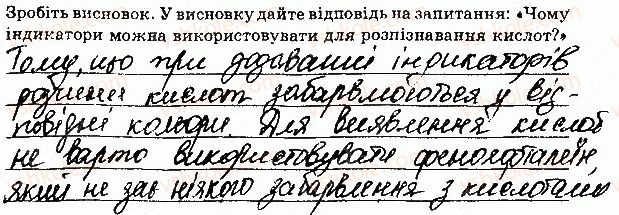 Зробіть висновок. У висновку дайте відповідь на запитання: «Чому
індикатори можна використовувати для розпізнавання кислот?»
Тому, що при додаванні індикаторів
розчини кислот забарвлюються у від-
повідні кольори. Для виявлення кислот
не варто використовувати фенолфталеїн,
який не дає ніякого забарвлення з кислотами